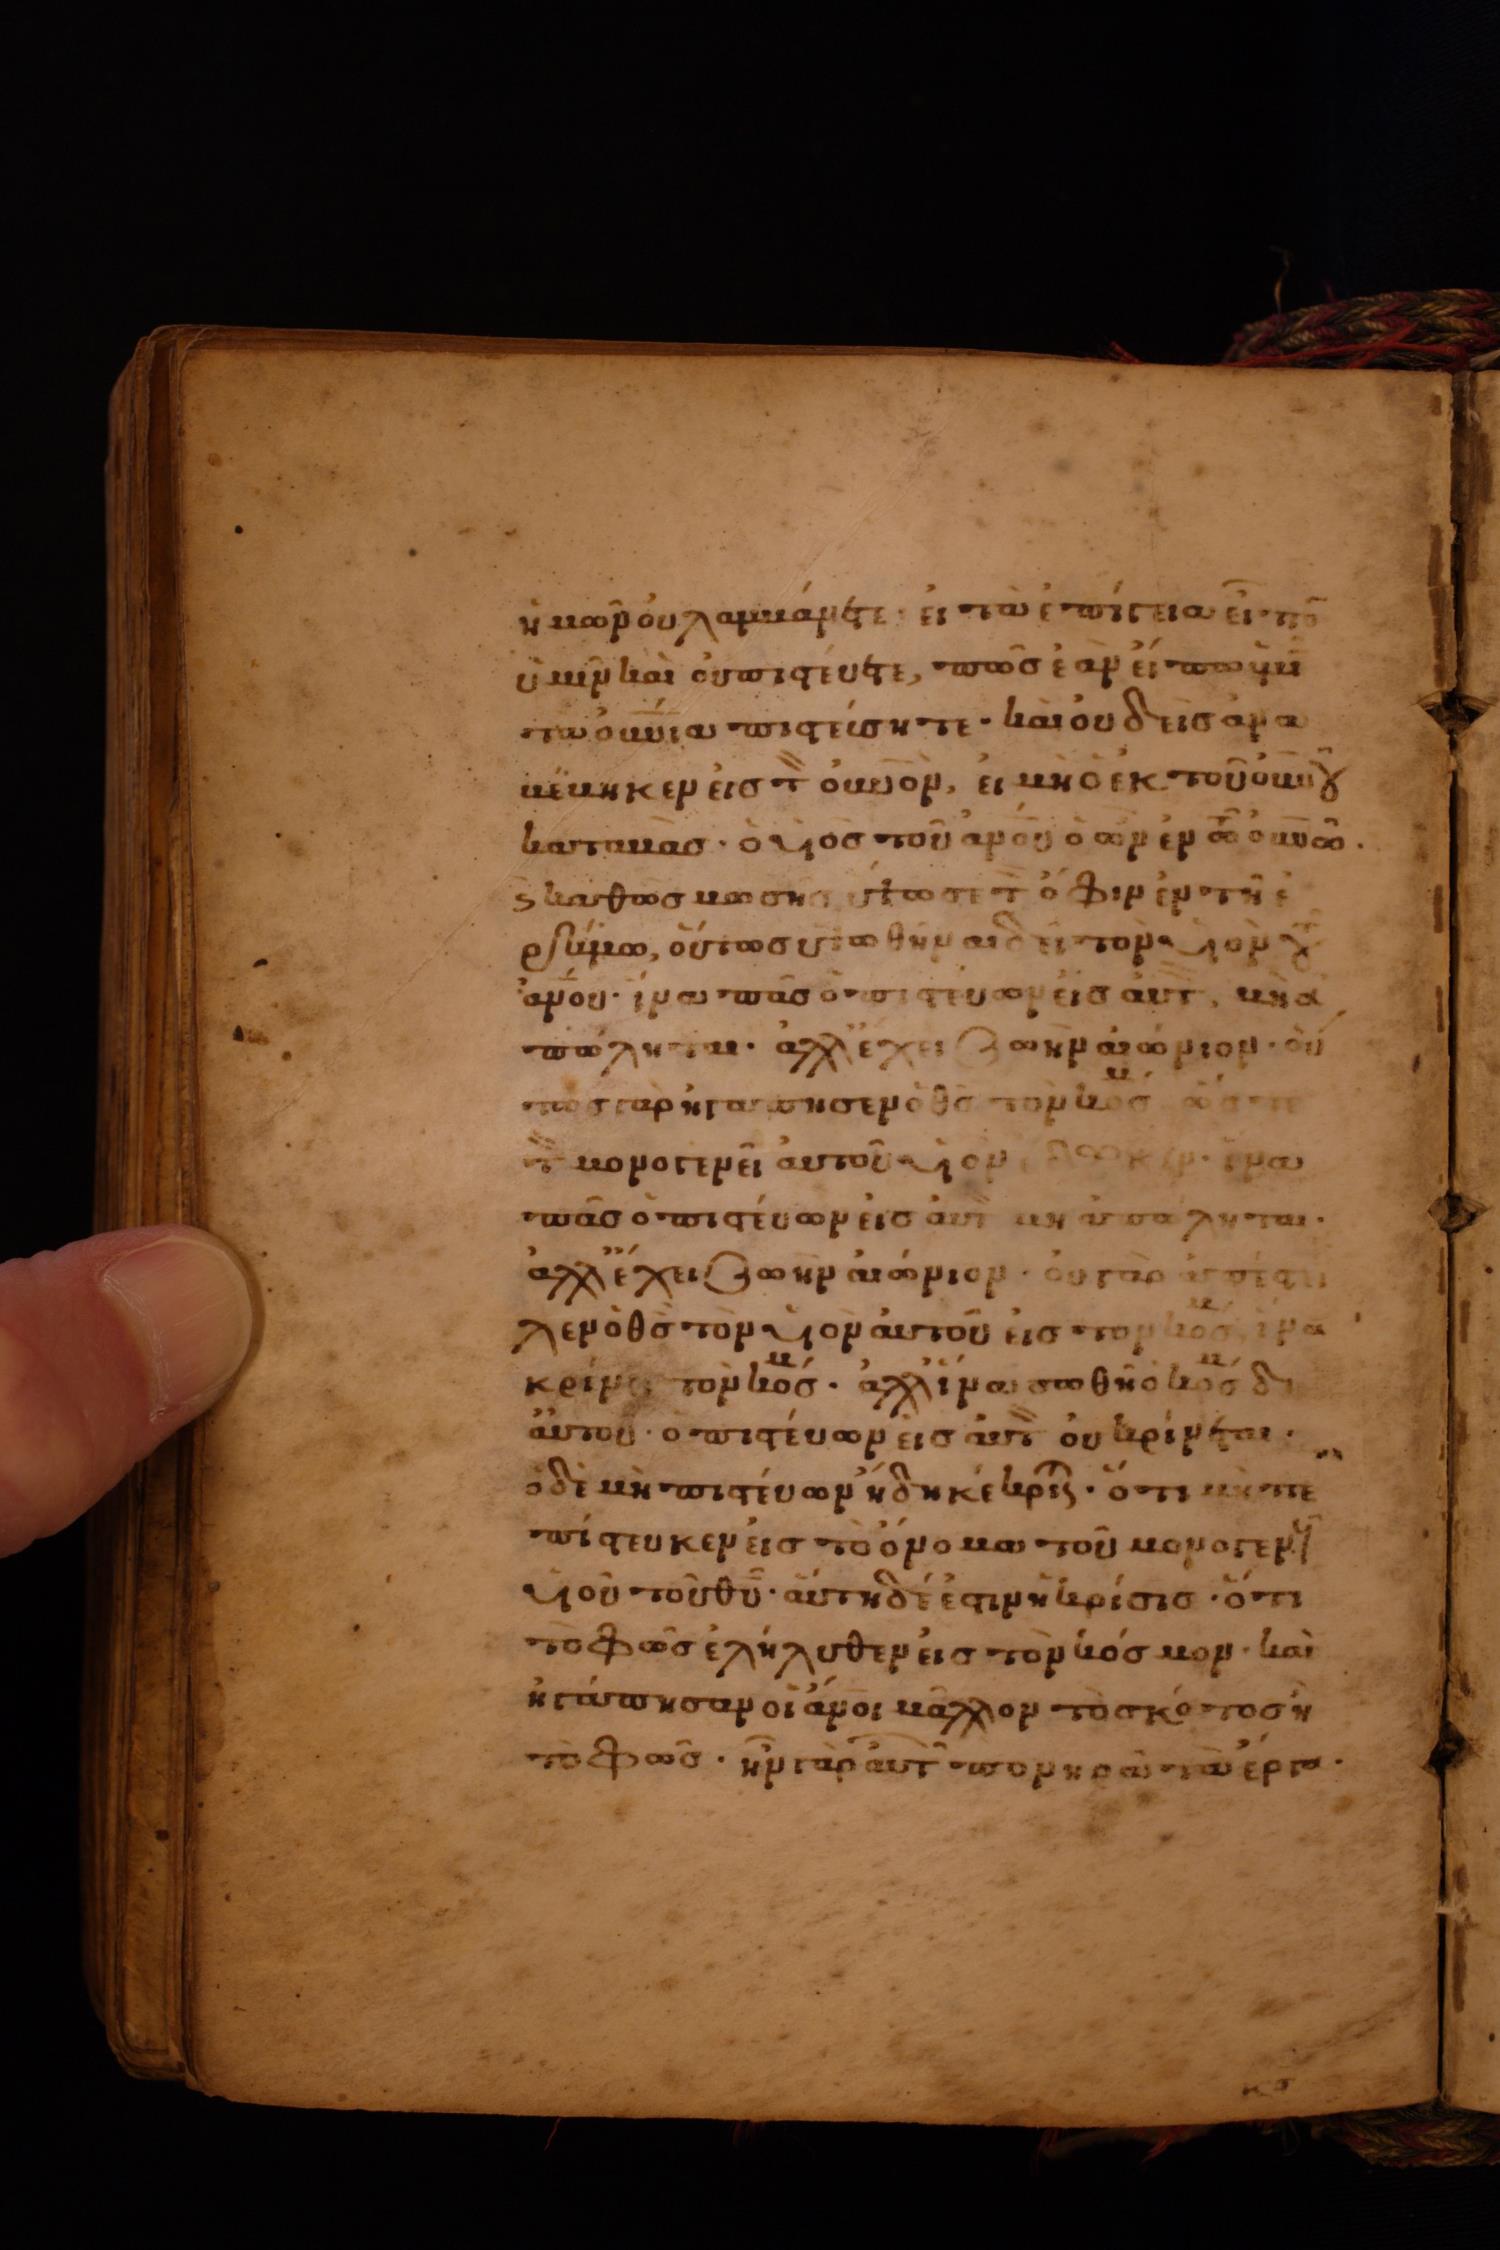 ἡμῶν οὐ λαμβάνετε· εἰ τὰ ἐπίγεια εἶπον
ὑμῖν καὶ οὐ πιστεύετε, πῶς ἐὰν εἴπω ὑμῖν
τὰ οὐνία πιστεύσητε· καὶ οὐδεὶς ἀνα
βέβηκεν εἰς τ οὐνὸν, εἰ μὴ ὁ ἐκ τοῦ οὐνοῦ
καταβὰς· ὁ υἱὸς τοῦ ἀνου ὁ ὢν ἐν τῶ οὐνῶ·
ϛ καθὼς μωσῆς ὕψωσε τ ὄφιν ἐν τῆ ἐ
ρήμω, οὕτως ὑψωθῆναι δεῖ τὸν υἱὸν τοῦ
ἀνου· ἵνα πᾶς ὁ πιστεύων εἰς ἀυτ, μὴ ἀ
πόληται· ἀλλ ἔχει ζωὴν ἀιώνιον· οὕ
τως γὰρ ἠγάπησεν ὁ θς τὸν κόσμ ὥστε
τ μονογενῆ ἀυτοῦ υἱὸν ἔδωκεν· ἵνα
πᾶς ὁ πιστεύων εἰς ἀυτ μὴ ἀπόληται·
ἀλλ ἔχει ζωὴν ἀιώνιον· οὐ γὰρ ἀπέστει
λεν ὁ θς τὸν υἱὸν ἀυτοῦ εἰς τὸν κόσμ, ἵνα
κρίνη τὸν κόσμ· ἀλλ ἵνα σωθῆ ὁ κόσμ δι
ἀυτοῦ· ὁ πιστεύων εἰς ἀυτ οὐ κρίνεται·
ὁ δὲ μὴ πιστεύων ἤδη κέκριται· ὅτι μὴ πε
πίστευκεν εἰς τὸ ὄνομα τοῦ μονογενοῦ
υἱοῦ τοῦ θυ· ἄυτη δέ ἐστιν ἡ κρίσις· ὅτι
τὸ φῶς ἐλήλυθεν εἰς τὸν κόσμον· καὶ
ἠγάπησαν οἱ ἄνοι μᾶλλον τὸ σκότος ἢ
τὸ φῶς· ἦν γὰρ ἀυτ πονηρὰ τὰ ἔργα·